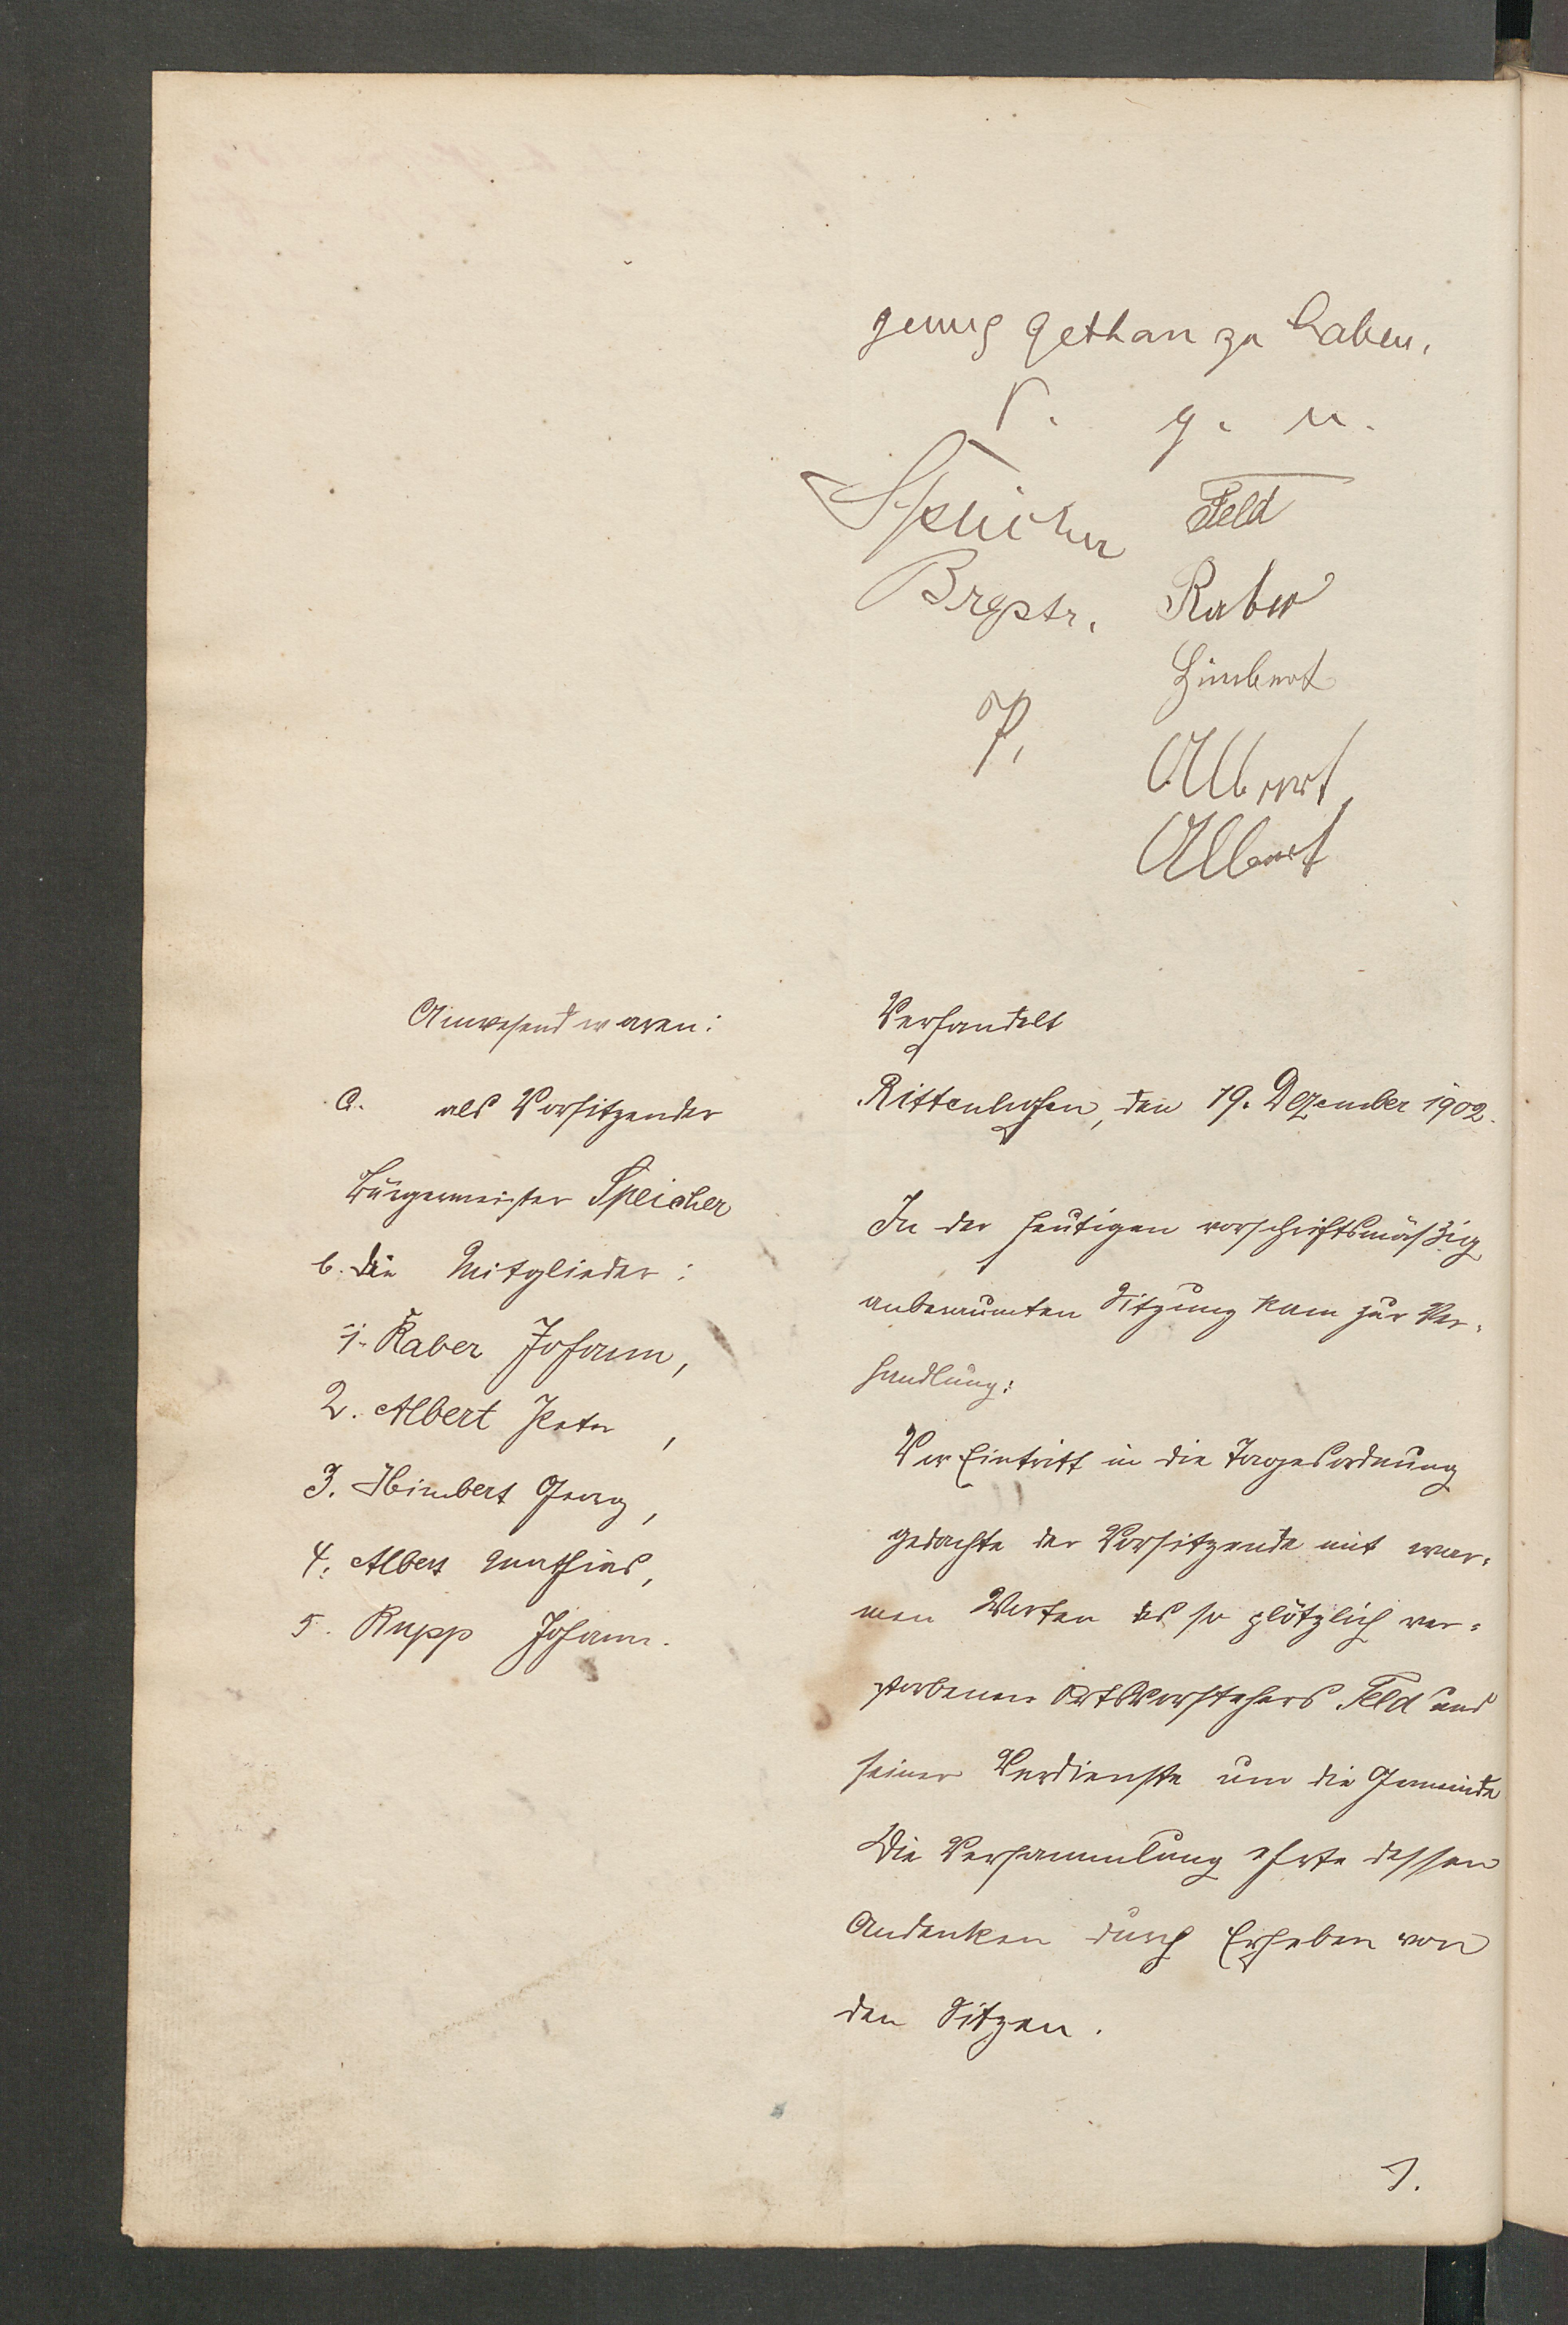 genug gethan zu haben.
V. g. u.
Speicher Feld
Brgstr. Raber
Himbert
Albert
Albert
Anwesend waren:
a. als Vorsitzender
Bürgermeister Speicher
b. die Mitglieder:
1. Raber Johann,
2. Albert Peter,
3. Himbert Georg,
4. Albert Mathias,
5. Rupp Johann.
Verhandelt
Rittenhofen, den 19. Dezember 1902.
In der heutigen vorschriftsmäßig
anberaumten Sitzung kam zur Ver-
handlung:
Vor Eintritt in die Tagesordnung
gedachte der Vorsitzende mit war-
men Worten des so plötzlich ver-
storbenen Ortsvorstehers Feld und
seiner Verdienste um die Gemeinde
Die Versammlung ehrte dessen
Andenken durch Erheben von
den Sitzen.
1.